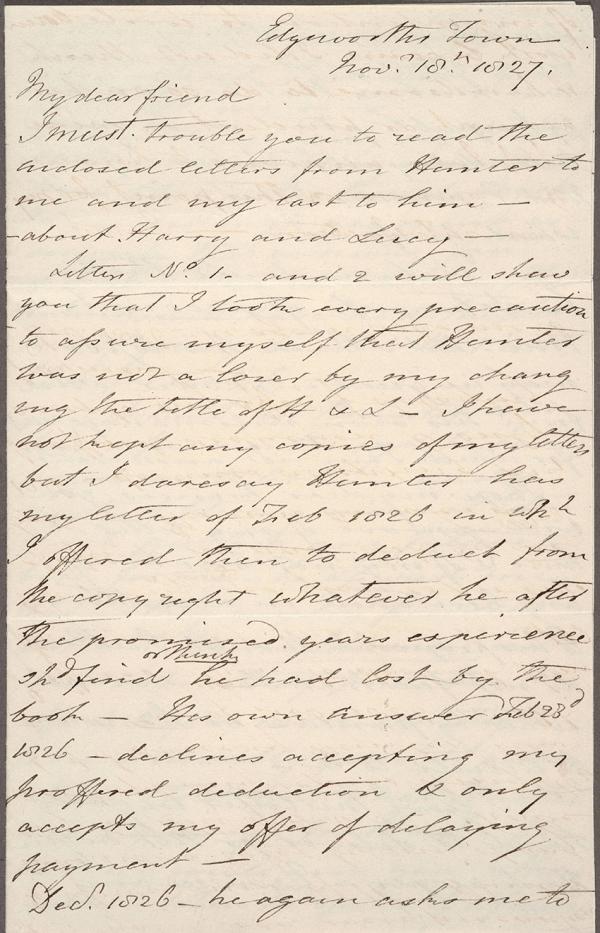 Edgeworths Town
Novr. 18th. 1827.
My dear friend
I must trouble you to read the
enclosed letters from Hunter to
me and my last to him —
— about Harry and Lucy —
Letters No. 1. and 2 will shew
you that I took every precaution
to assure myself that Hunter
was not a loser by my chang
ing the title of H & L — I have
not kept any copies of my letters
but I daresay Hunter has
my letter of Feb 1826 in whh
I offered then to deduct from
the copyright whatever he after
the promised years experience
shd find or think he had lost by the
book — His own answer Feb 23d
1826 — declines accepting my
proffered deduction & only
accepts my offer of delaying
payment —
Decr. 1826 — he again asks me to